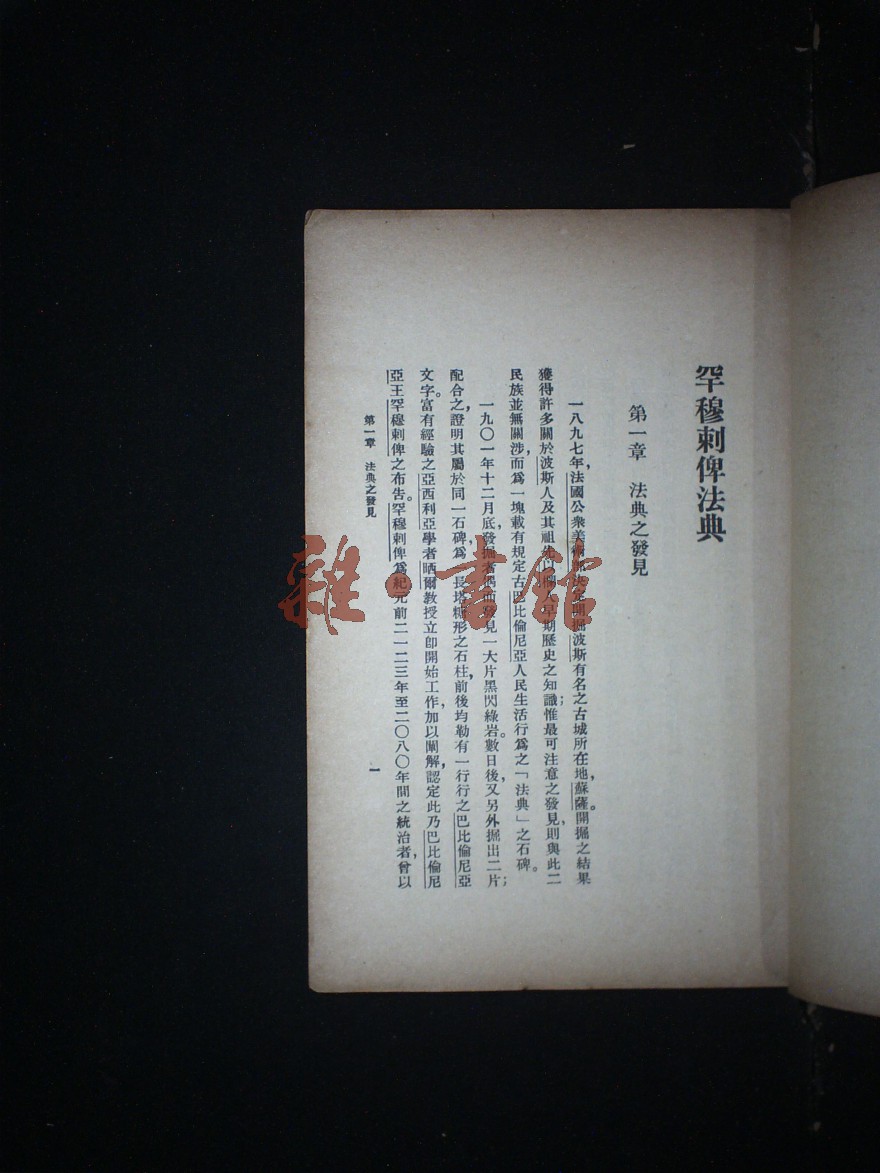 罕穆剌俾法典
第一章　法典之發見
一八九七年，法國公衆美術部決定開掘波斯有名之古城所在地，蘇薩。開掘之結果
獲得許多關於波斯人及其祖先以倆人早期歷史之知識；惟最可注意之發見，則與此二
民族並無關涉，而爲一塊載有規定古巴比倫尼亞人民生活行爲之「法典」之石碑。
一九〇一年十二月底，發掘者偶而發見一大片黑閃綠岩。數日後，又另外掘出二片；
配合之，證明其屬於同一石碑，爲一長塔糖形之石柱，前後均勒有一行行之巴比倫尼亞
文字。富有經驗之亞西利亞學者晒爾教授立卽開始工作，加以闡解，認定此乃巴比倫尼
亞王罕穆剌俾之布告。罕穆剌俾爲紀元前二一二三年至二〇八〇年間之統治者，曾以
第一章　法典之發見
一
雜·書館